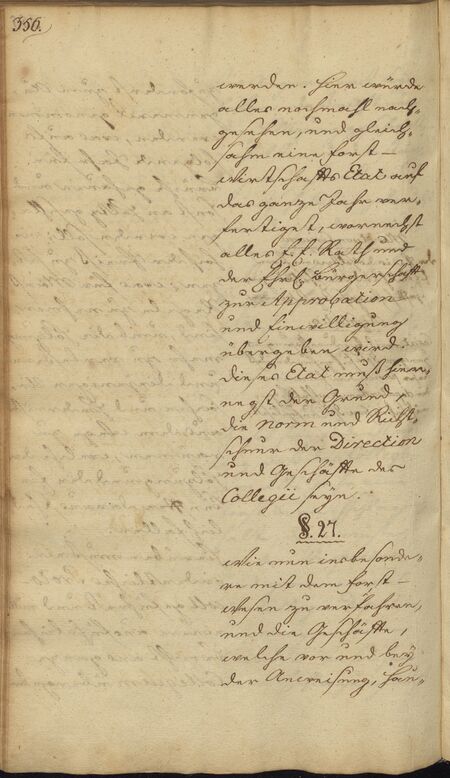 356.
werden. Hier würde
alles nochmahl nach-
gesehen, und gleich-
sahm eine Forst-
Wirtschaffts Etat auf
das ganze Jahr ver-
fertiget, wornechst
alles E. E. Rath und
der Ehrl. Bürgerschafft
zur Approbation
und Einwilligung
übergeben wird.
Dieses Etat muß hier-
negst der Grund,
die Norm und Richt-
schnur der Direction
und Geschäffte des
Collegii seyn.
§. 27.
Wie nun insbesonde-
re mit dem Forst-
Wesen zu verfahren,
und die Geschäffte,
welche vor und bey
der Anweisung, Hau-